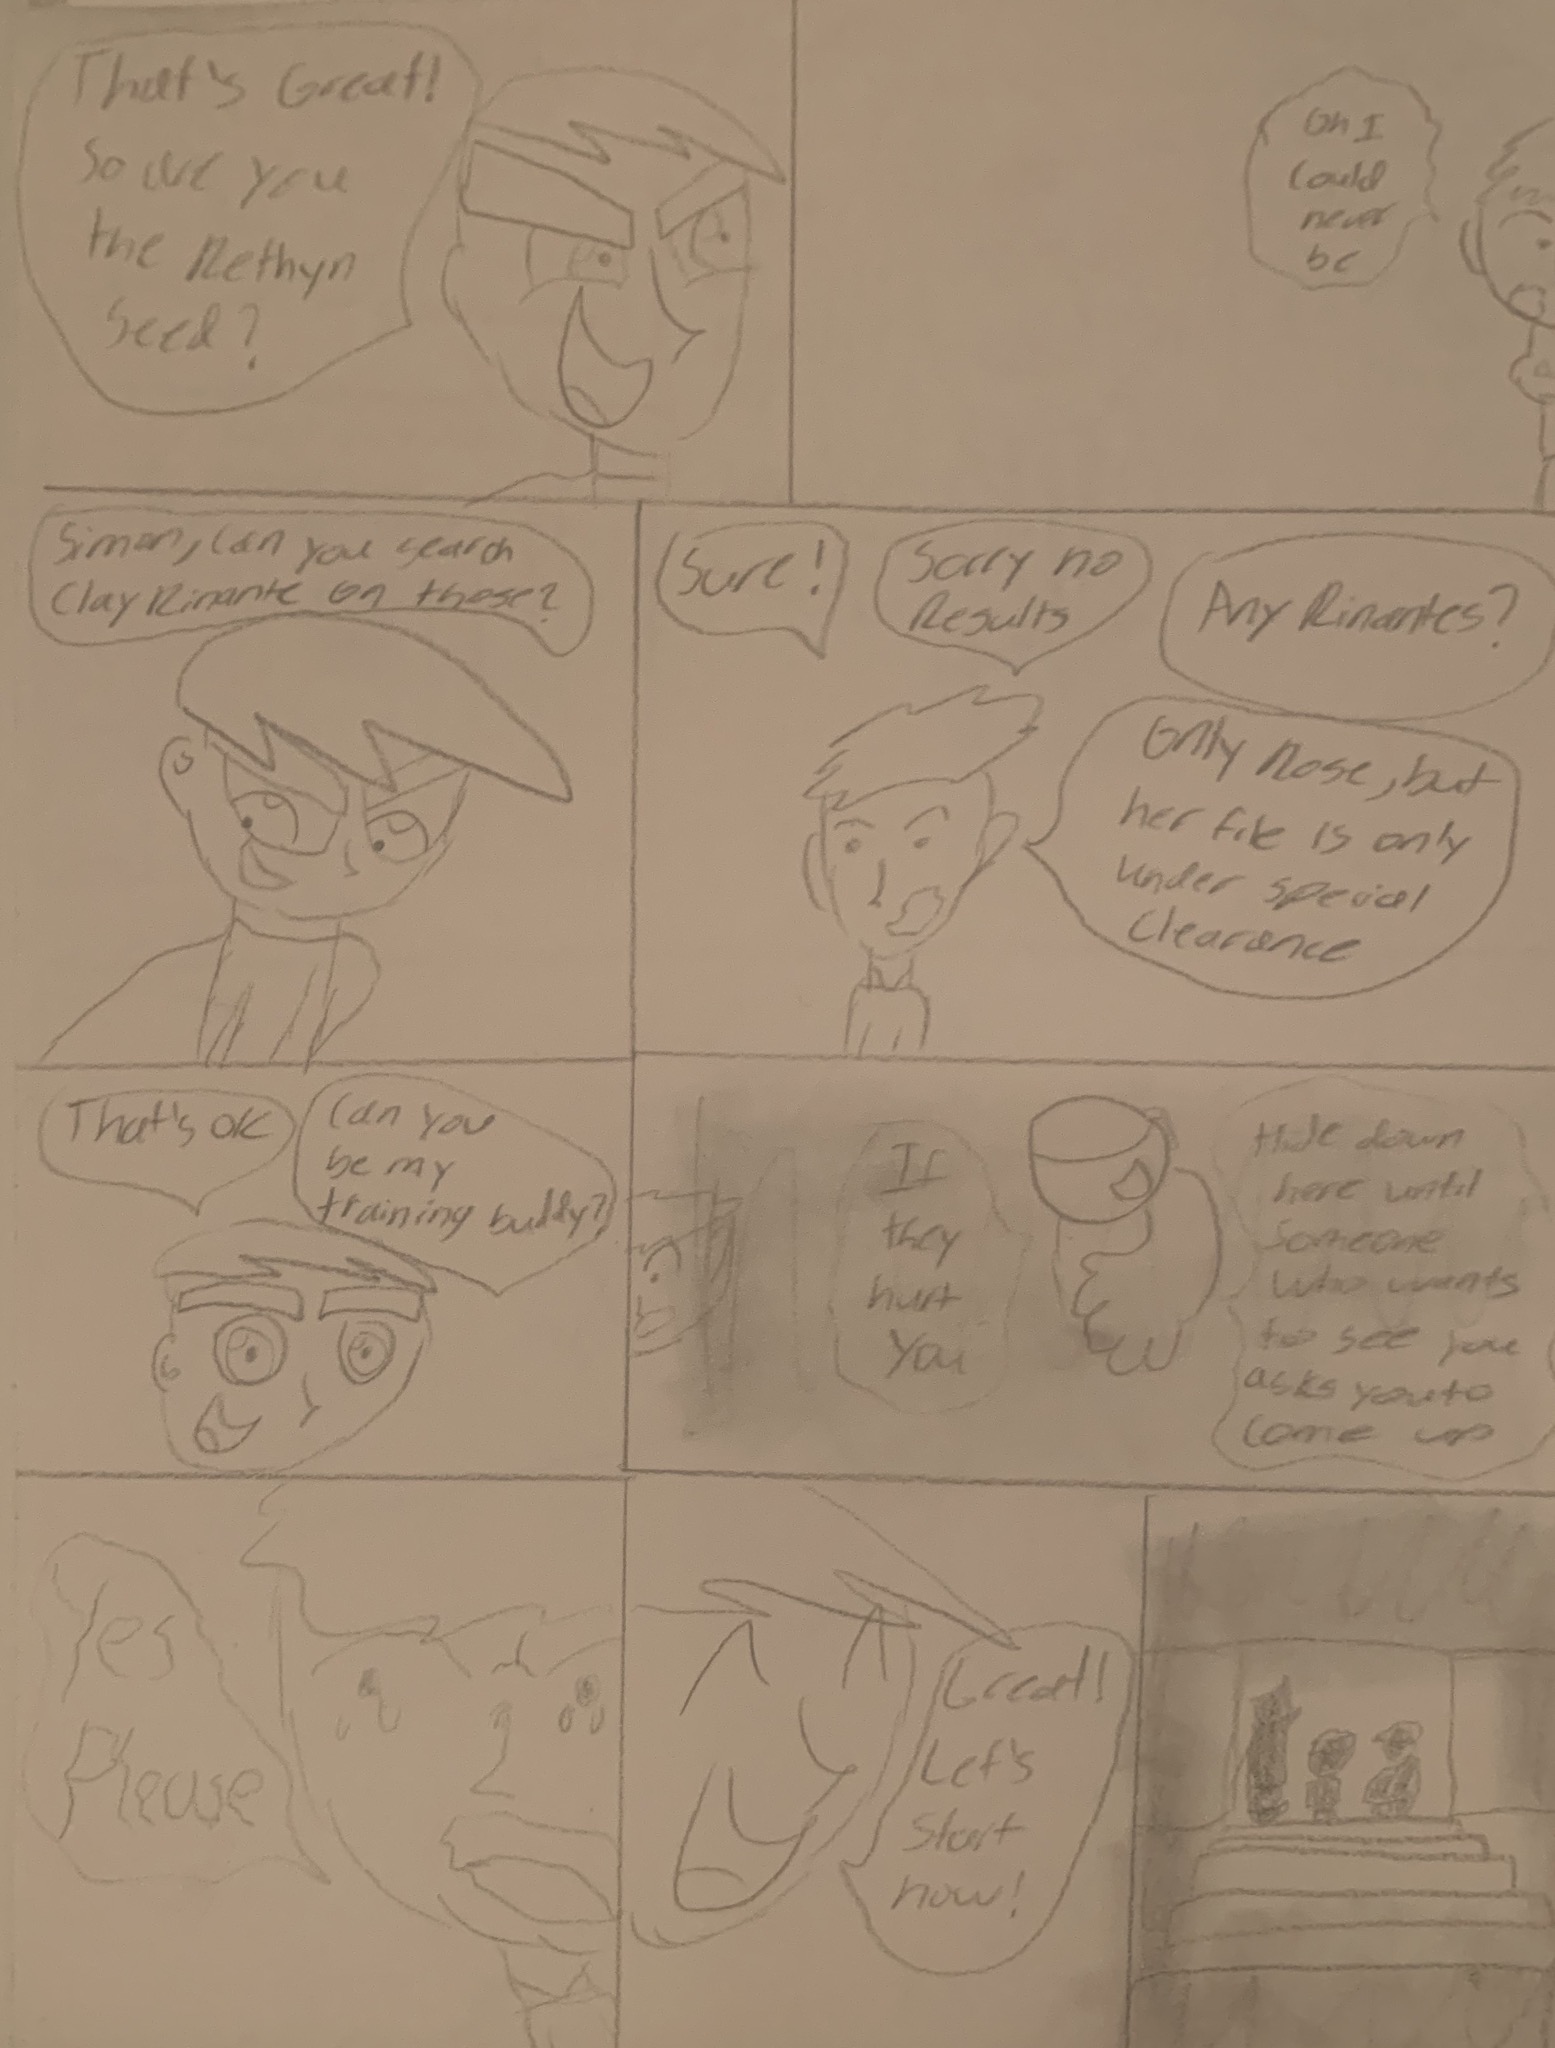 That's Great!
So are you
the Rethyn
Seed?
Oh I
Could
never
be
Simon, Can you search
Clay Rinante on those?
Sure!
Sorry no
Results
Any Rinantes?
Only Rose, but
her file is only
under special
Clearance
That's ok
Can you
be my
training buddy?
If
they
hurt
You
Hide down
here until
Someone
Who wants
to see you
asks you to
Come up
Yes
Please
Great!
Let's
Start
now!